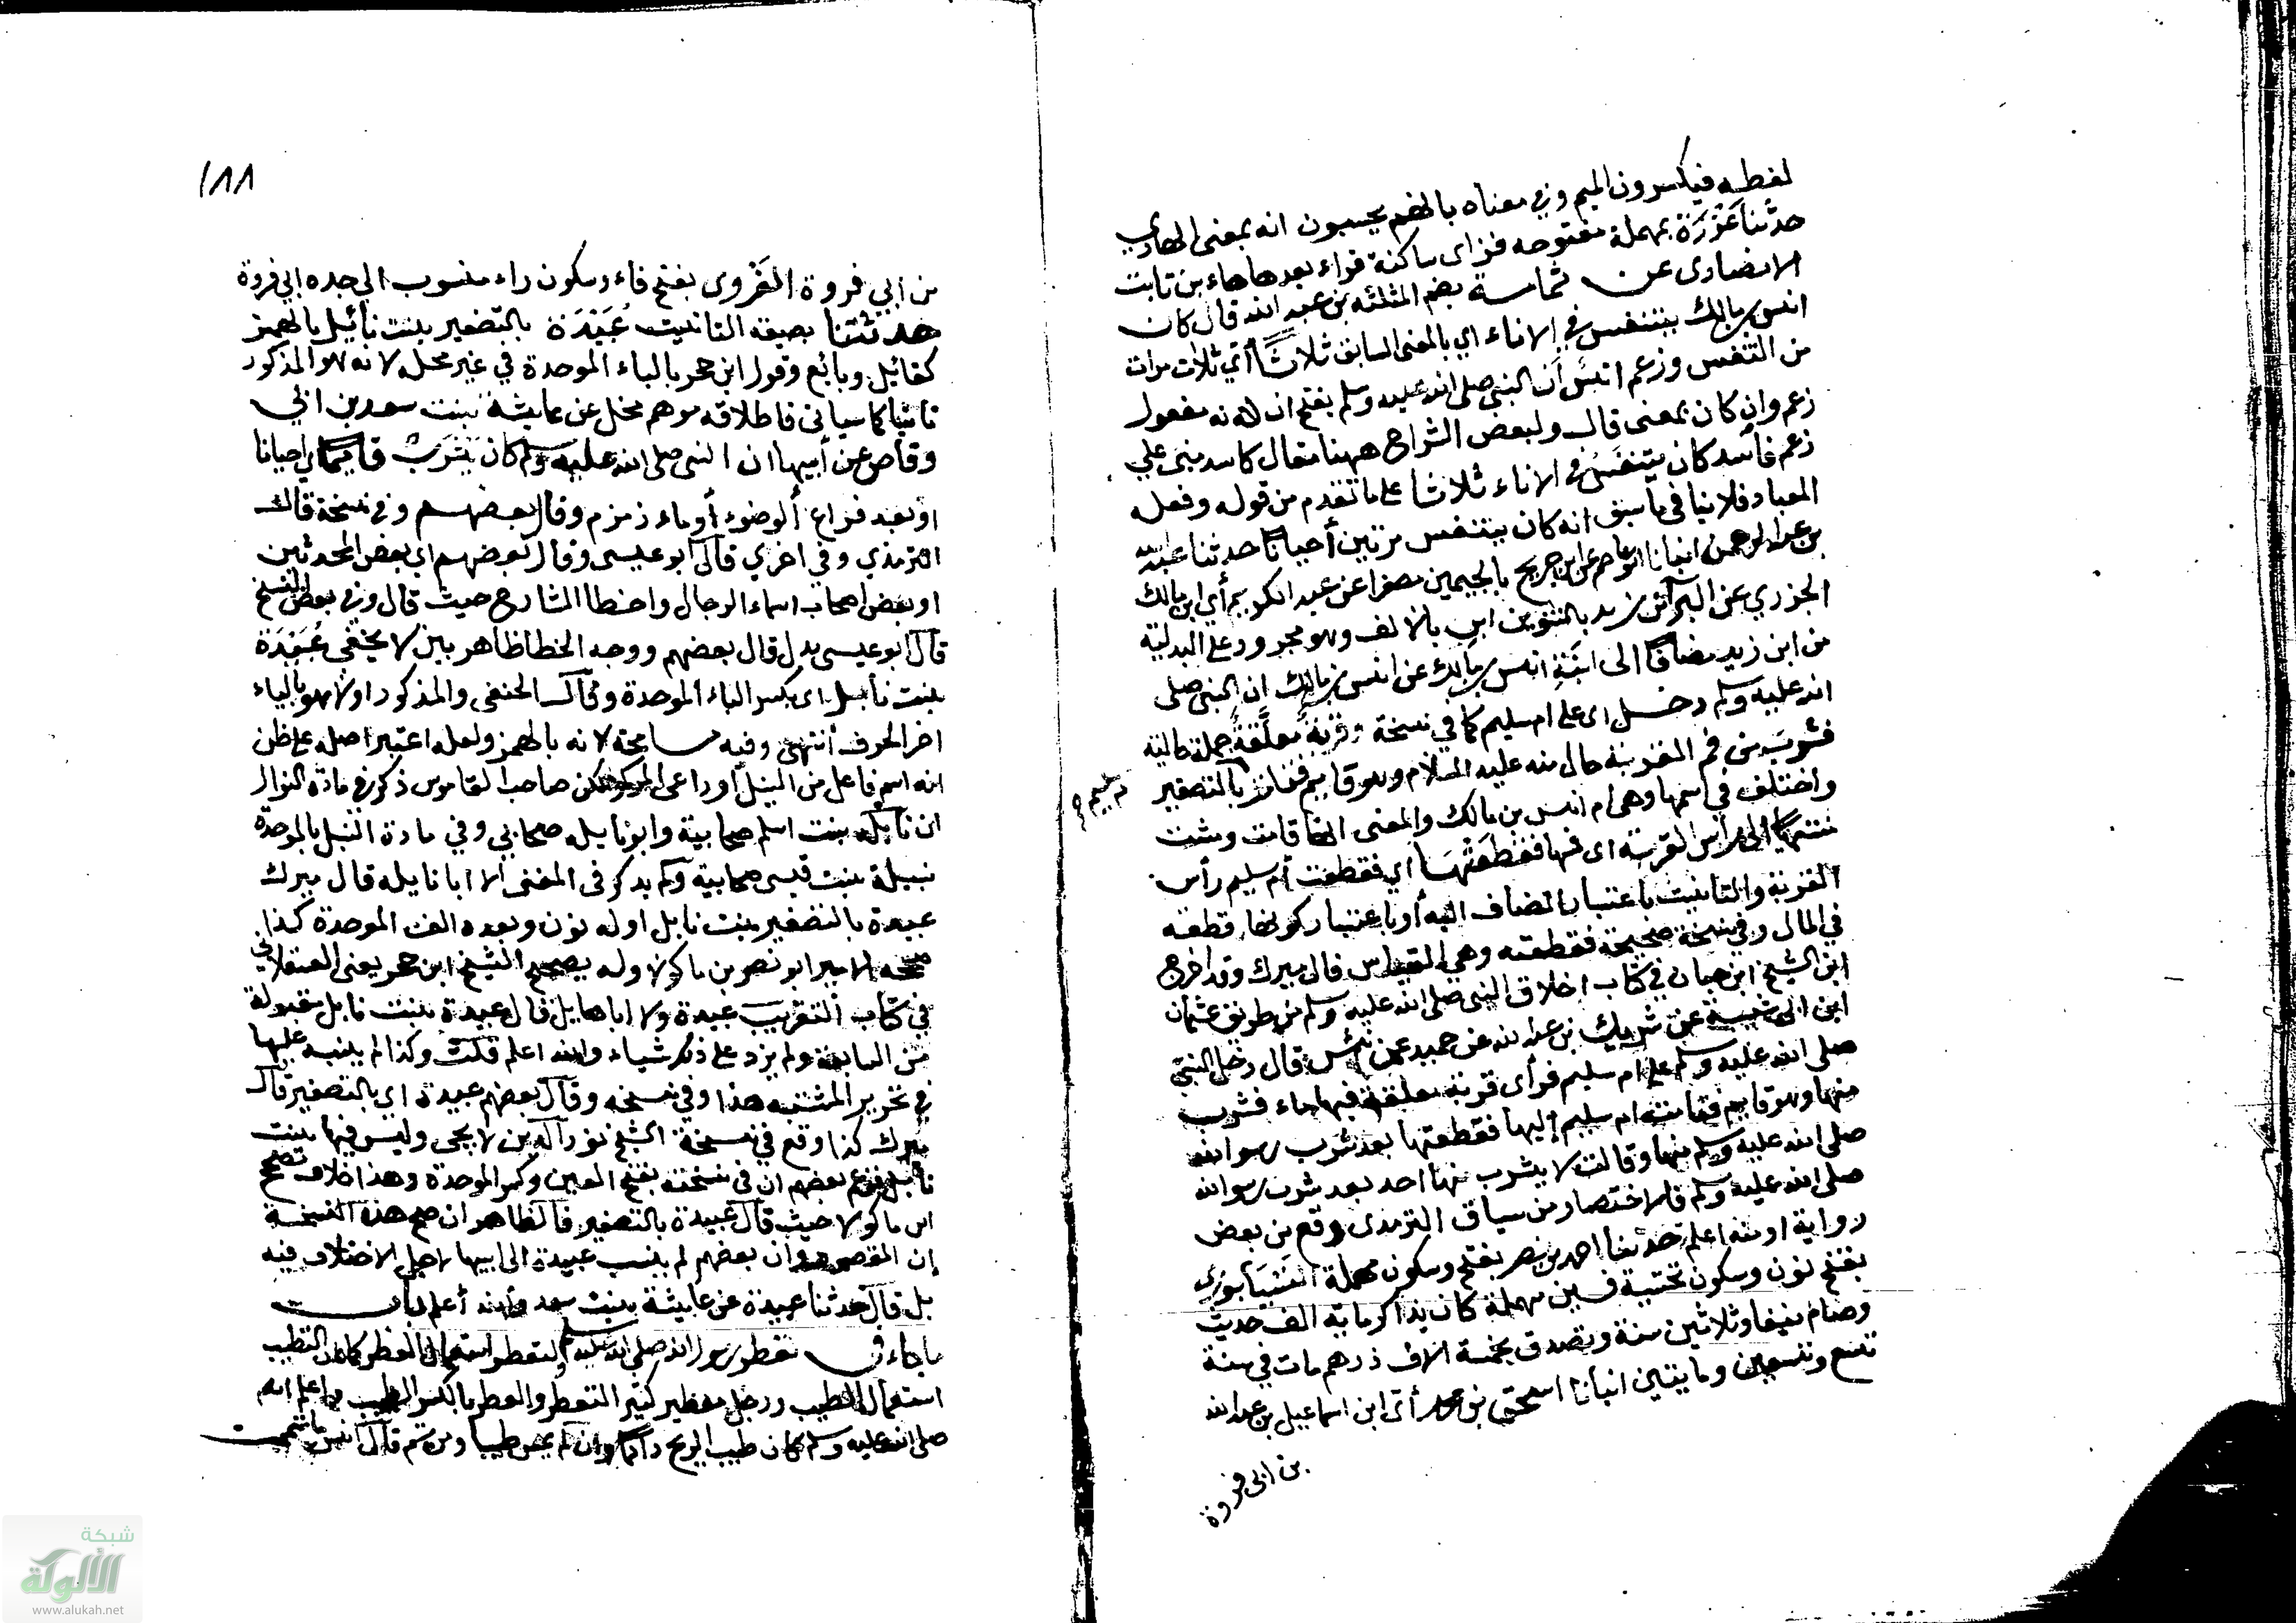 لفظه فيكسرون الميم وفي معناه بالضم يحسبون انه بمعنى الهادي
حدثنا عَزْرَة بمهملة مفتوحه فزاى ساكنة فراء بعدها هاء بن ثابت
الانصارى عن ثمامة بضم المثلثه بن عبد الله قال كان
انس بن مالك يتنفس في الاناء اي بالمعنى السابق ثلاثًا أي ثلاث مرات
من التنفس وزعم انس أن النبي صلى الله عليه وسلم بفتح ان لانه مفعول
زعم وان كان بمعنى قال ولبعض الشراح ههنا مقال كاسد مبنى علي
زعم فاسد كان يتنفس في الاناء ثلاثا على ما تقدم من قوله وفعله
المعتاد فلا ينافي ما سبق انه كان يتنفس مرتين أحيانًا حدثنا عبد الله
بن عبد الرحمن انبانا ابو عاصم عن ابن جريج بالجيمين مصغرا عن عبد الكريم أي ابن مالك
الجزري عن البرآء بن زيد بالتنوين ابن بالالف وهو مجرور على البدلية
من ابن زيد مضافًا الى ابنَةِ انس بن مالك عن انس بن مالك ان النبي صلى
الله عليه وسلم دخل اى على ام سليم كما في نسخة وقربةٌ معلقةٌ جملة حالية
فشرب من فم القربة حال منه عليه السلام وهو قايم فقامت بالتصغير
ام سليم
واختلف في اسمها وهي ام انس بن مالك والمعنى انها قامت ومشت
منتهيًا الى رأس القربة اى فمها فقطعَتْهَا اي فقطعت أم سليم رأس
القربة والتانيث باعتبار المضاف اليه أو باعتبار كونها قطعه
في المال وفي نسخة صحيحة فقطعته وهي القياس قال ميرك وقد اخرج
ابن الشيخ ابن حبان في كتاب اخلاق النبي صلى الله عليه وسلم من طريق عثمان
ابن ابى شيبة عن شريك بن عبد الله عن حميد عن انس قال دخل النبي
صلى الله عليه وسلم على ام سليم فرأى قربة معلقة فيها ماء فشرب
منها وهو قايم فقامت ام سليم إليها فقطعتها بعد شرب رسول الله
صلى الله عليه وسلم منها وقالت لا يشرب منها احد بعد شرب رسول الله
صلى الله عليه وسلم فالاختصار من سياق الترمذى وقع من بعض
رواية او منه اعلم حدثنا احمد بن نصر بفتح وسكون مهملة النَّيْسَابوري
بفتح نون وسكون تحتية فسين مهملة كان يذاكر ماية الف حديث
وصام نيفا وثلاثين سنة وتصدق بخمسة الاف درهم مات في سنة
تسع وتسعين ومايتين انبأنا اسحق بن محمد أى ابن اسماعيل بن عبد الله
بن ابى فروة
١٨٨
من ابي فروة الفَرْوى بفتح فاء وسكون راء منسوب الى جده ابي فروة
حدثتنا بصيغة التانيث عُبَيْدَة بالتصغير بنت نائيل بالهمز
كقائل وبائع وقول ابن حجر بالباء الموحدة في غير محله لانه هو المذكور
ثانيًا كما سياتى فاطلاقه موهم مخل عن عايشة بنت سعد بن ابي
وقاص عن أبيها ان النبى صلى الله عليه وسلم كان يشرب قايمًا اي احيانا
او بعد فراغ ألوضوء أو ماء زمزم وقال بعضهم وفي نسخة قال
الترمذي وفي اخري قال ابو عيسى وقال بعضهم اي بعض المحدثين
او بعض اصحاب اسماء الرجال واخطا الشارح حيث قال وفي بعض النسخ
قال ابو عيسى بدل قال بعضهم ووجه الخطا ظاهر بين لا يخفى عُبَيْدَة
بنت نابل اى بكسر الباء الموحدة وقال الحنفى والمذكور اولا هو بالياء
اخر الحرف أنتهى وفيه مسامحة لانه بالهمز ولعله اعتبر اصله على ظن
انه اسم فاعل من النيل او راعى المركز لكن صاحب القاموس ذكر في مادة النوال
ان نائلة بنت اسلم صحابية وابو نايله صحابي وفي مادة النبل بالموحدة
نبيلة بنت قيس صحابية ولم يذكر في المغنى الا ابا نايله قال ميرك
عبيدة بالتصغير بنت نابل اوله نون وبعده الف الموحدة كذا
صححه الامير ابو نصر بن ماكولا وله يصحح الشيخ ابن حجر يعنى العسقلاني
في كتاب التقريب عبيدة ولا اباها بل قال عبيدة بنت نابل مقبولة
من السابعة ولم يزد على ذلك شياء والله اعلم قلت وكذا لم ينبه عليها
في تحرير المشتبه هذا وفي نسخه وقال بعضهم عبيدة اى بالتصغير قال
ميرك كذا وقع في نسخة الشيخ نور الدين لايجى وليس فيها بنت
نابل فزعم بعضهم ان فى نسخته بفتح العين وكسر الموحدة وهذا خلاف تصحيح
ابن ماكولا حيث قال عبيدة بالتصغير فالظاهر ان صح هذه النسخة
إن المقصود ان بعضهم لم ينسب عبيدة الى ابيها لاجل الاختلاف فيه
بل قال حدثنا عبيدة عن عايشة بنت سعد والله أعلم باب
ما جاء في تعطر رسول الله صلى الله عليه وسلم التعطر استعمال العطر كما ان التطيب
استعمال الطيب ورجل معطير كثير التعطر والعطر بالكسر الطيب واعلم انه
صلى الله عليه وسلم كان طيب الريح دائمًا وان لم يمس طيبا ومن ثم قال انس ما شممت
شبكة
الألوكة
www.alukah.net